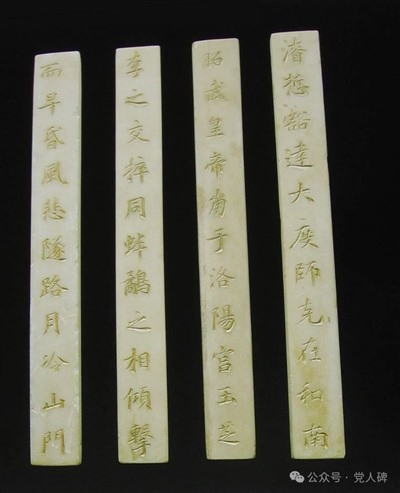 濬悊豁達大度師克在和南
昭武皇帝崩于洛陽宮玉芝
李之交捽同蚌鷸之相傾擊
而早昏風悲隧路月冷山門
公众号 · 党人碑